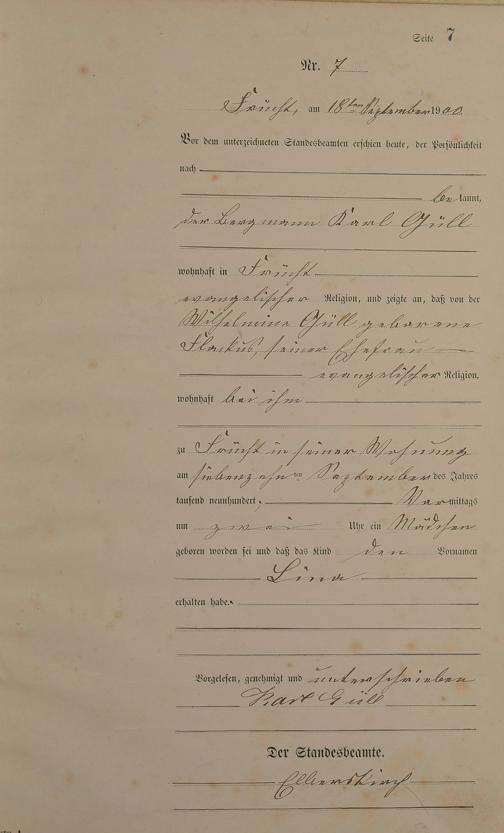 Seite 7
Nr. 7
Frücht, am 18ten September 1900
Vor dem unterzeichneten Standesbeamten erschien heute, der Persönlichkeit
nach
bekannt,
der Bergmann Karl Güll
wohnhaft in Frücht
evangelischer Religion, und zeigte an, daß von der
Wilhelmine Güll geborene
Flackus, seiner Ehefrau
evangelischer Religion,
wohnhaft bei ihm
zu Frücht in seiner Wohnung
am siebenzehnten September des Jahres
tausend neunhundert, Vormittags
um zwei Uhr ein Mädchen
geboren worden sei und daß das Kind den Vornamen
Lina
erhalten habe.
Vorgelesen, genehmigt und unterschrieben
Karl Güll
Der Standesbeamte.
Elberskirch